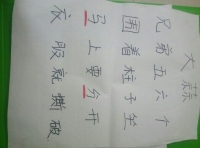 大蒜
兄弟五六个
围着柱子坐
马上要分开
衣服就撕破